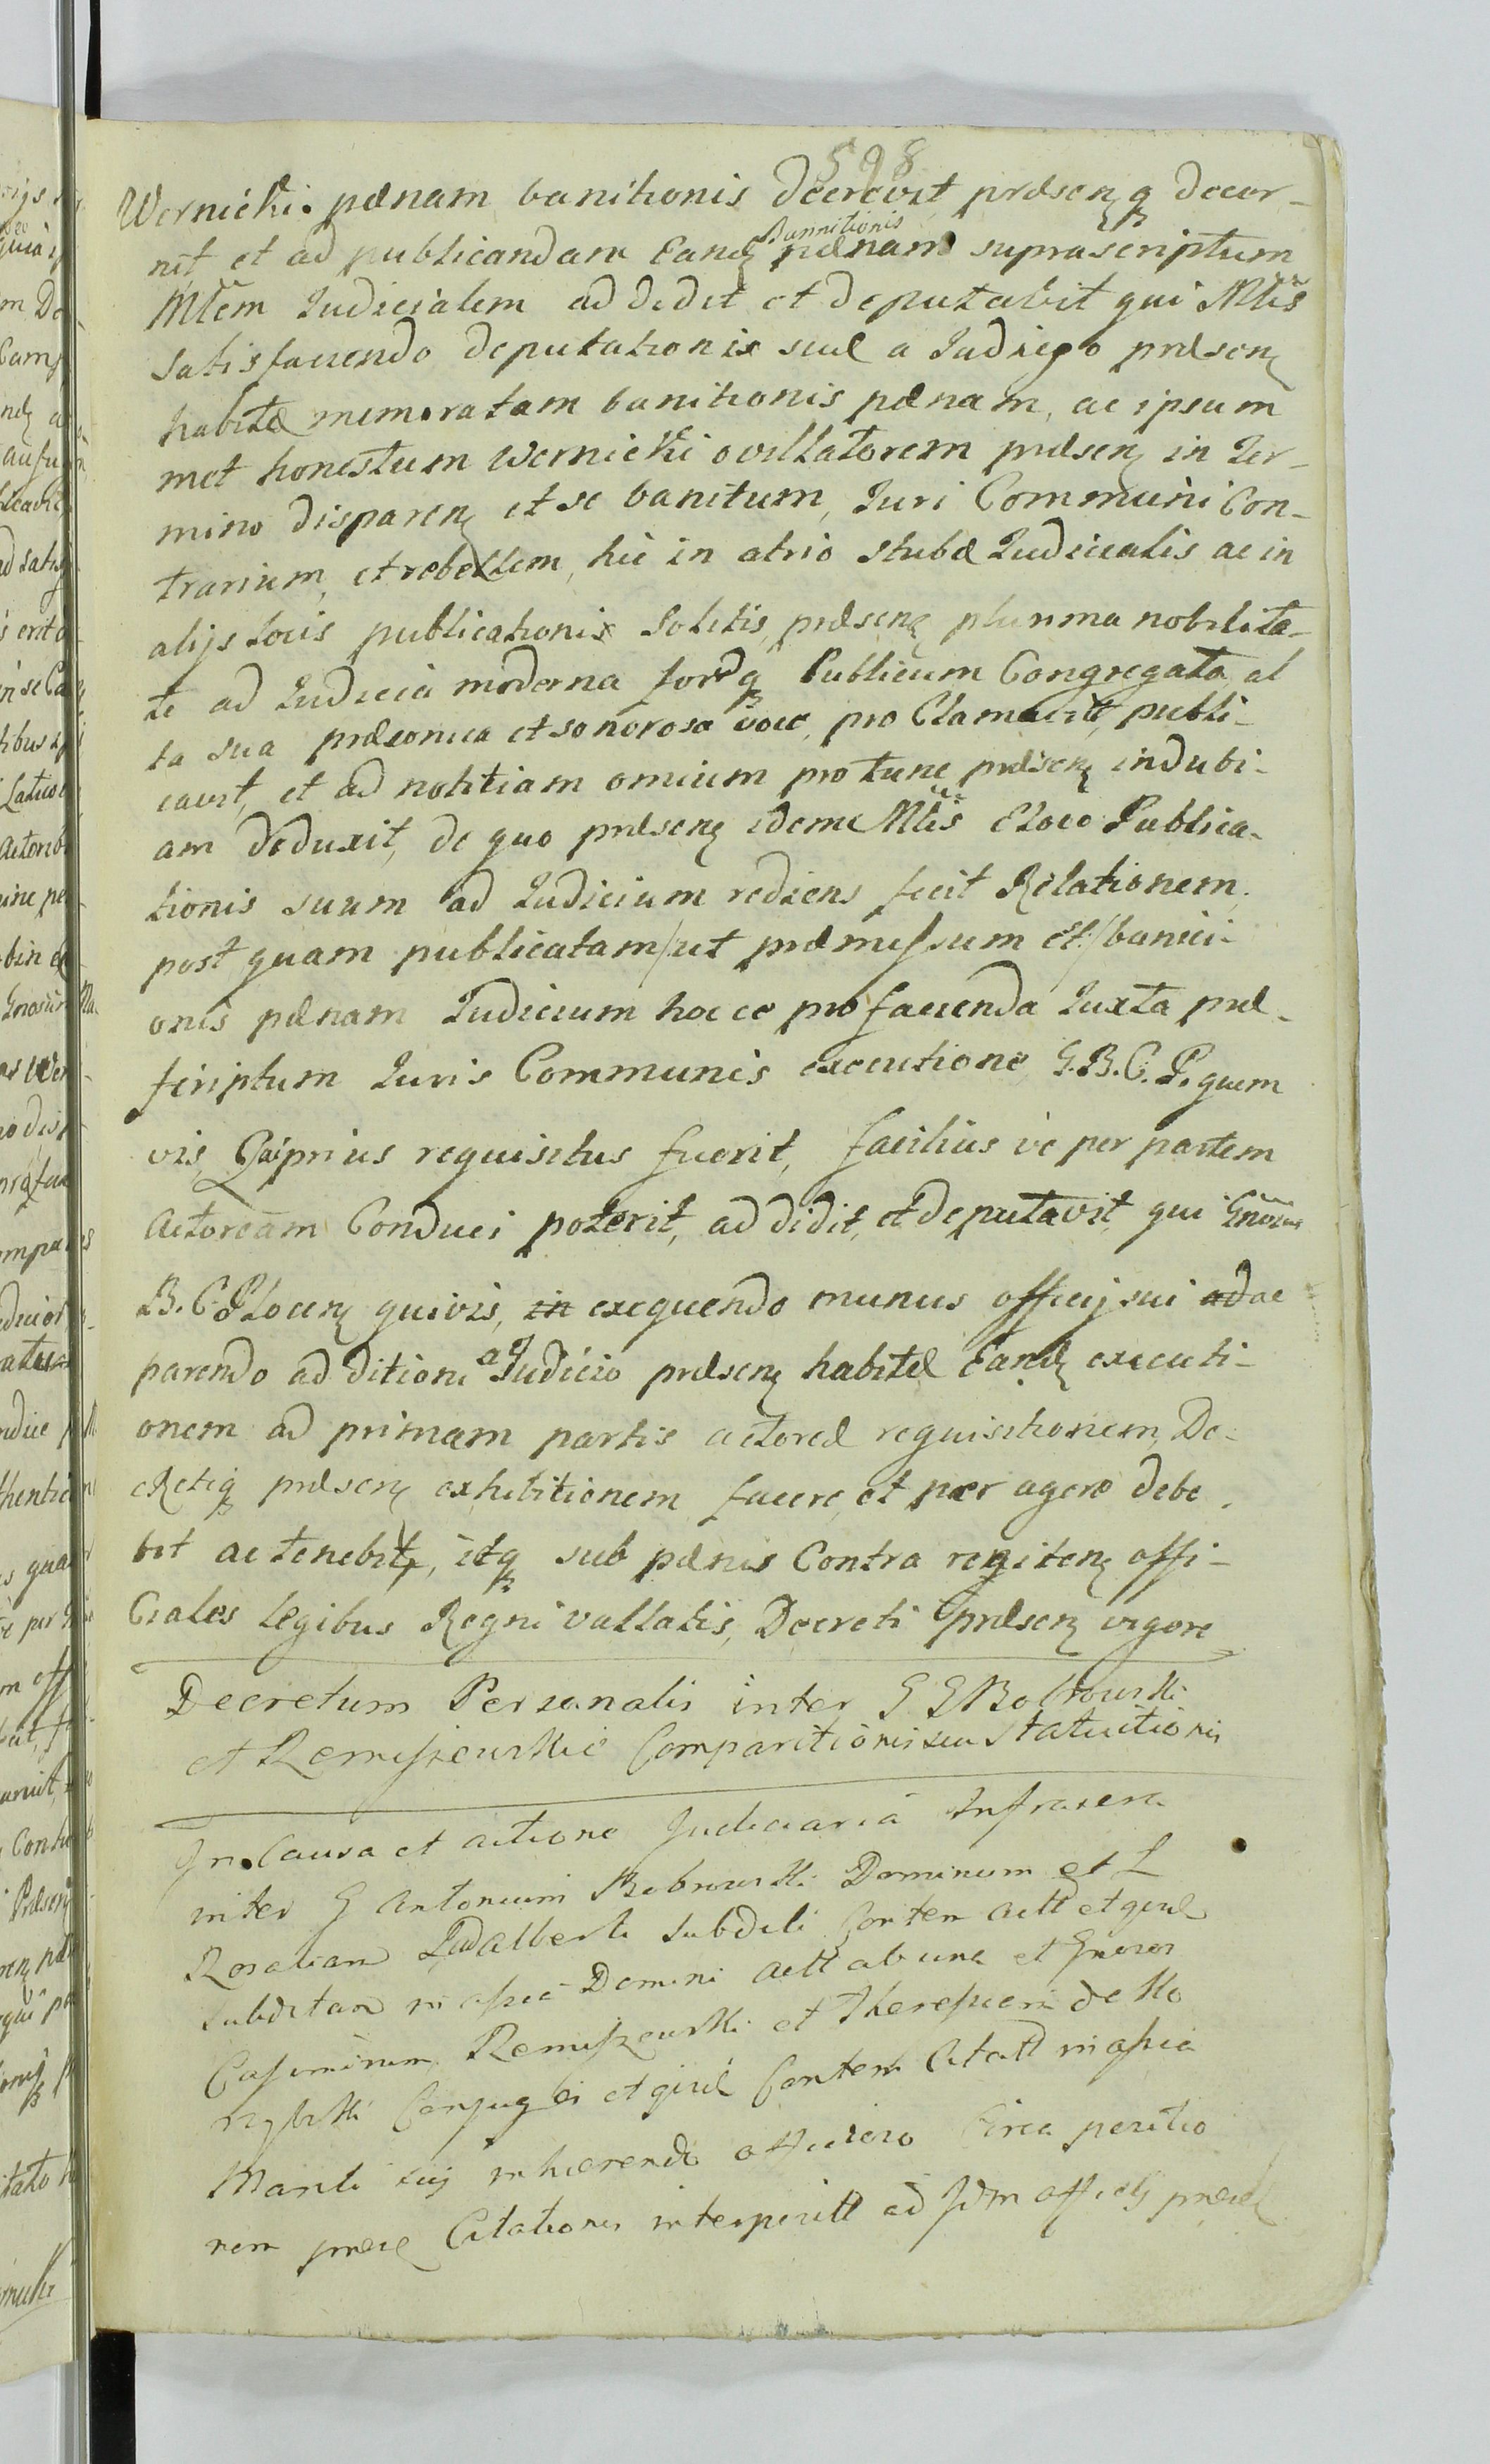 598
Wernicki pænam banitionis decrevit præsenq decer-
nit et ad publicandam Eand Bannitionis pænam suprascriptum
Mlem Judicialem addidit et deputabit qui Mlis
satisfaciendo deputationis suæ a Judicio præsen
habitæ memoratam banitionis pænam, ac ipsum
met honestum Wernicki ovillatorem præsen in Ter-
mino disparen et se banitum, Juri Communi Con-
trarium, et rebellem, hic in atrio stubæ Judicialis ac in
alijs locis publicationis Solitis, præsen plurima nobilita-
te ad Judicia moderna forq Publicum Congregata, al
ta sua præconica et sonorosa voce, pro Clamavit, publi-
cavit, et ad notitiam omium pro tunc præsen indubi-
am deduxit, de quo præsen idem Mlis Eloco Publica-
tionis suum ad Judicium rediens fecit Relationem.
post quam publicatam/ut præmissum est/banici-
onis pænam Judicium hocce pro facienda Juxta præ-
scriptum Juris Communis executione G.B.C.P. quem
vis, Qui prius requisitus fuerit, facilius ve per partem
actoream Conduci poterit, addidit, et deputavit, qui Gnosus
B.C.P. Locen quivis, in exequendo munus officij sui ad ac
parendo ad ditioni a Judicio præsen habitæ Eand executi-
onem ad primam partis actoreæ requisitionem, De-
cretiq præsen exhibitionem facere, et per agere debe
bit ac tenebit, idq sub pænis Contra reniten offi-
Ciales legibus Regni vallatis, Decreti præsen vigore
Decretum Personalis inter G G Bobrowski
et Remiszewskie Comparitionis seu Statuitionis
In Causa et actione Judiciaria Infrascra
inter G Antonium Bobrowski Dominum et L
Rosaliam Adalberti Subditi Conten actt et giræ
subditam in assia Domini actt ab una et Gnosos
Casimirum Remiszewski et Theressiam de
Conjuges et giræ Conten Citatt in assia
Mariti sui inhærendo officioso Circa peritio
nem præ Citationis interpositt ad Jdm officij præ